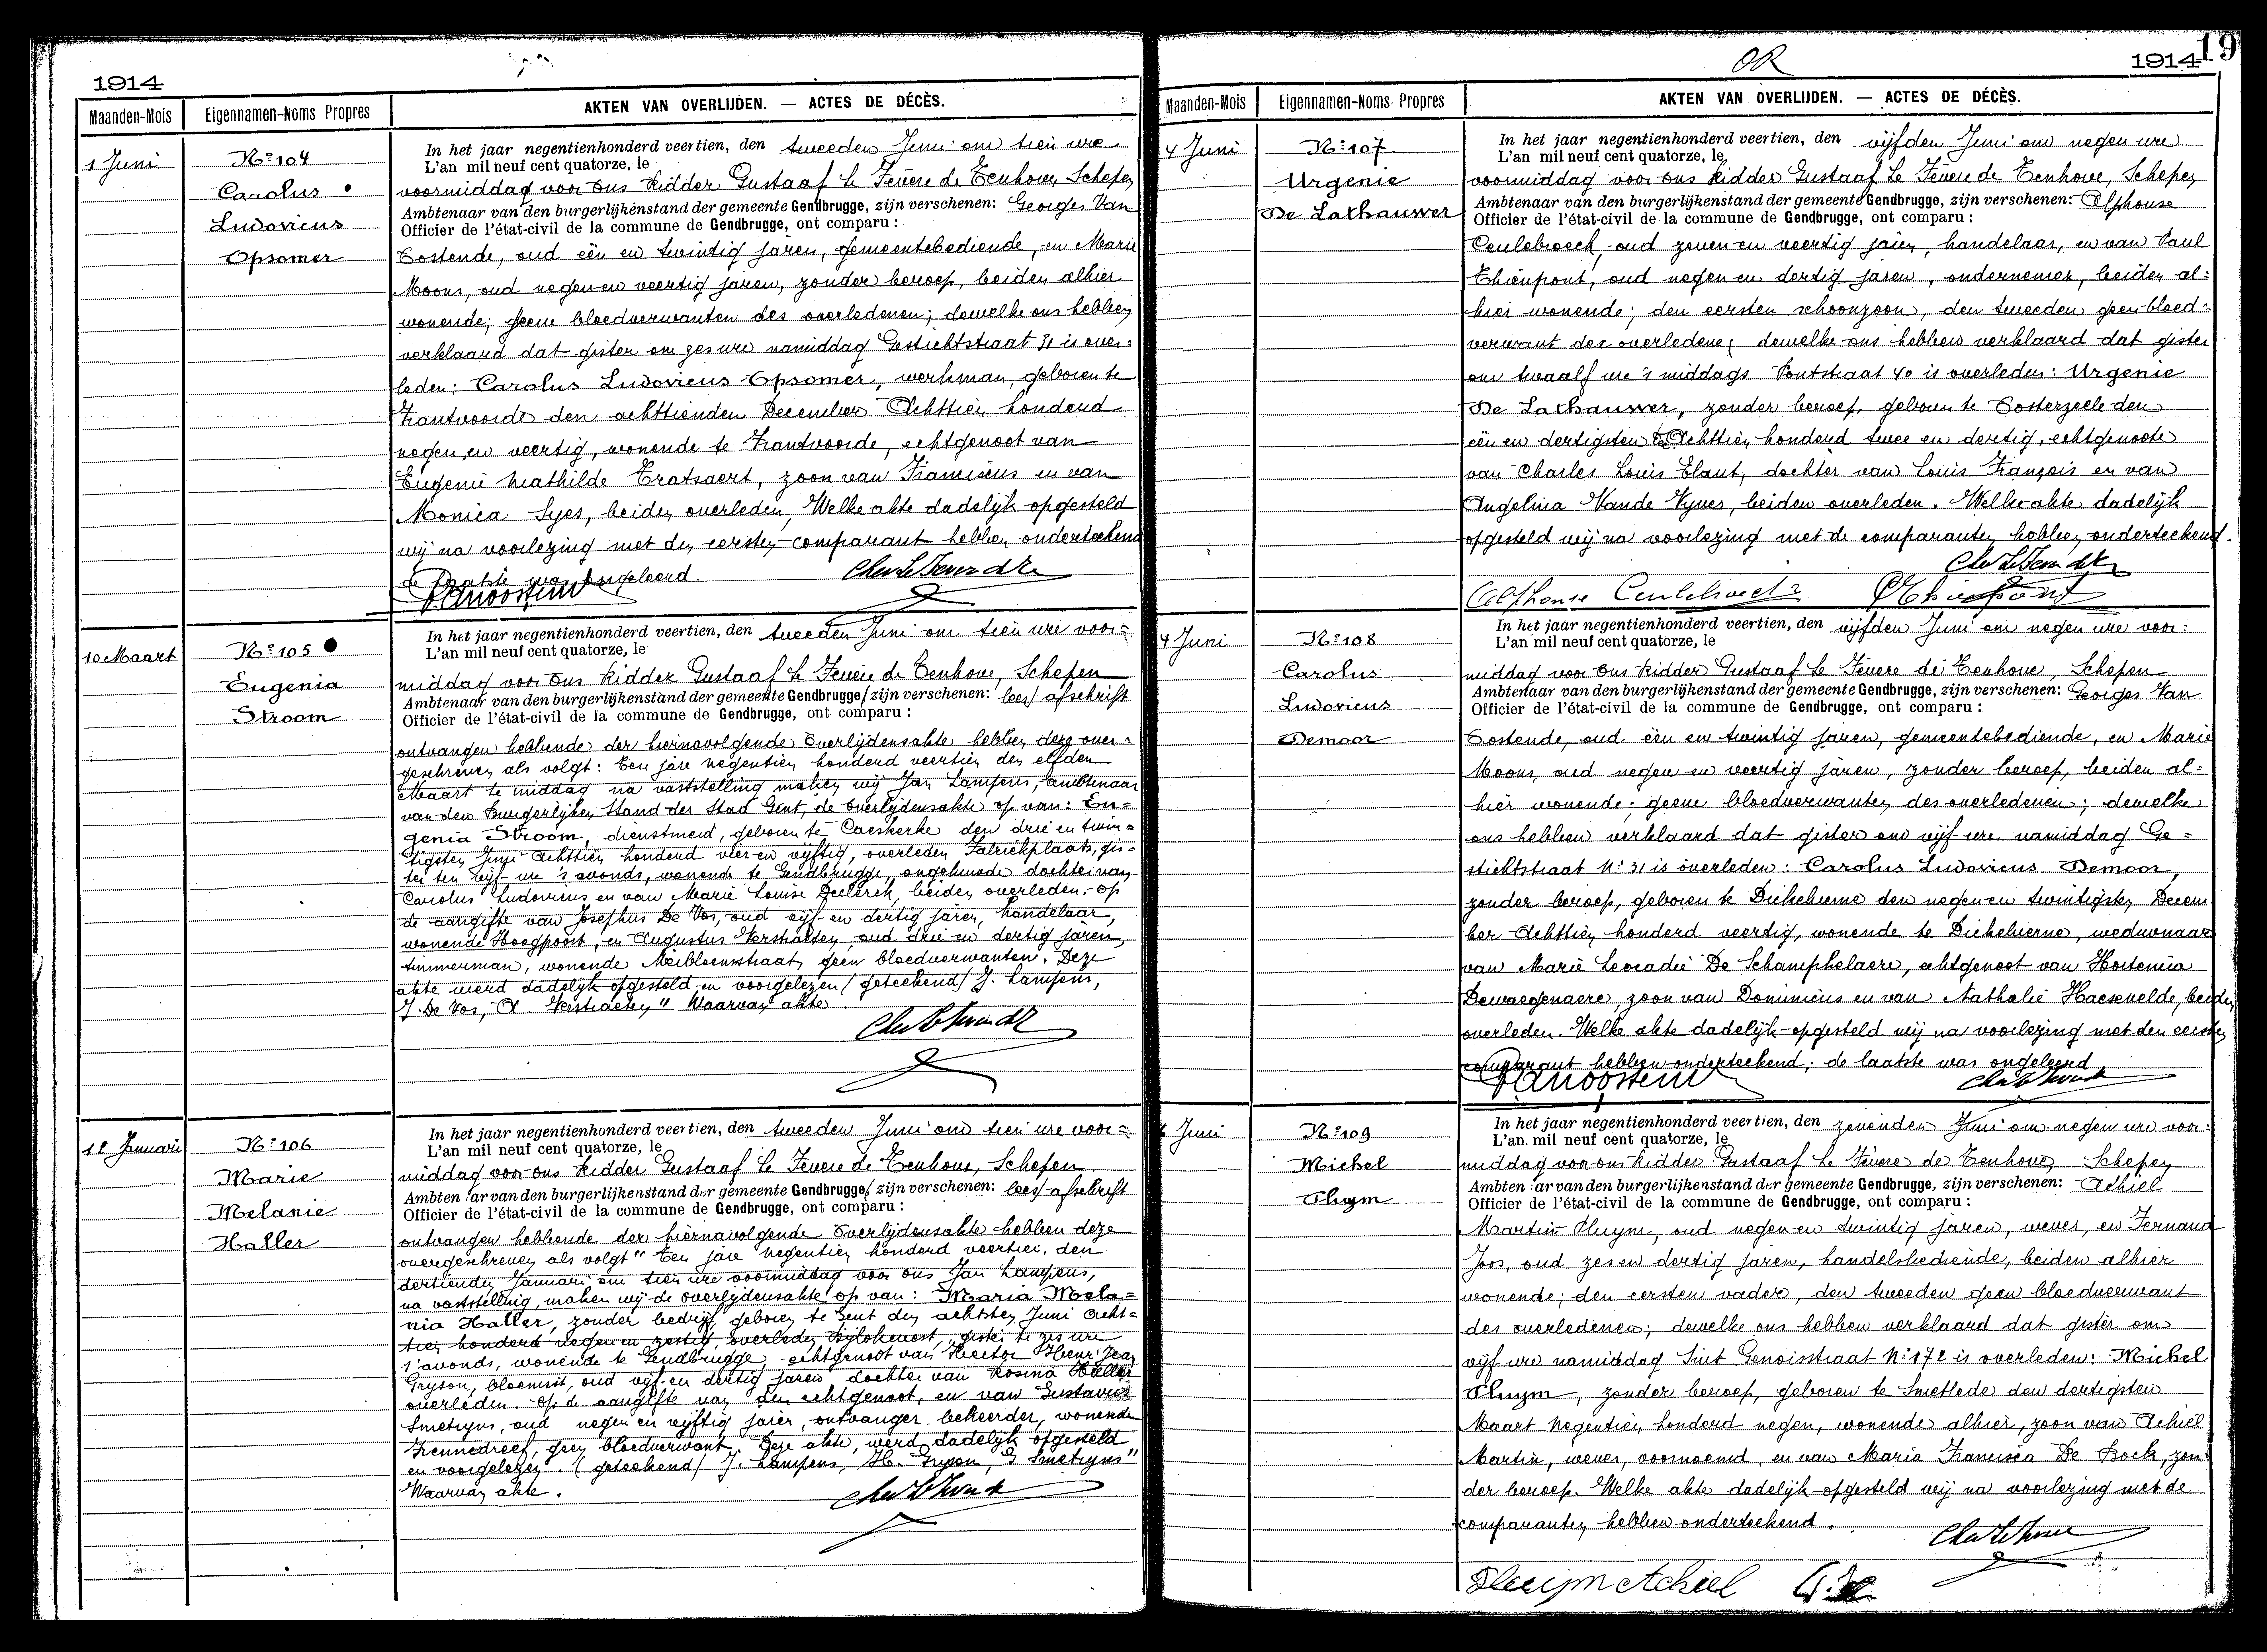 1914
Maanden-Mois
Eigennamen-Noms Propres
AKTEN VAN OVERLIJDEN. — ACTES DE DÉCÈS.
1 Juni
Nº 104
Carolus
Ludovicus
Opsomer
In het jaar negentienhonderd veertien, den tweeden Juni om tien ure
L'an mil neuf cent quatorze, le
voormiddag voor ons Ridder Gustaaf le Fevere de Tenhove, Schepen
Ambtenaar van den burgerlijkenstand der gemeente Gendbrugge, zijn verschenen: Georges Van
Officier de l'état-civil de la commune de Gendbrugge, ont comparu :
Oostende, oud één en twintig jaren, gemeentebediende, en Marie
Moons, oud negen en veertig jaren, zonder beroep, beiden alhier
wonende; geene bloedverwanten des overledenen; dewelke ons hebben
verklaard dat gister om zes ure namiddag Gestichtstraat 31 is over-
leden: Carolus Ludovicus Opsomer, werkman, geboren te
Zantvoorde den achttienden December Achttien honderd
negen en veertig, wonende te Zantvoorde, echtgenoot van
Eugenie Mathilde Tratsaert, zoon van Franciscus en van
Monica Syes, beiden overleden. Welke akte dadelijk opgesteld
wij na voorlezing met den eersten comparant hebben onderteekend
de laatste was ongeleerd.
10 Maart
Nº 105
Eugenia
Stroom
In het jaar negentienhonderd veertien, den tweeden Juni om tien ure voor-
L'an mil neuf cent quatorze, le
middag voor ons Ridder Gustaaf le Fevere de Tenhove, Schepen
Ambtenaar van den burgerlijkenstand der gemeente Gendbrugge, zijn verschenen: lees afschrift
Officier de l'état-civil de la commune de Gendbrugge, ont comparu :
ontvangen hebbende der hiernavolgende Overlijdensakte hebben deze over-
geschreven als volgt: Een jare negentien honderd veertien den elfden
Maart te middag na vaststelling maken wij Jan Lampens, ambtenaar
van den Burgerlijken Stand der Stad Gent, de overlijdensakte op van: Eu-
genia Stroom, dienstmeid, geboren te Caeskerke den drie en twin-
tigsten Juni Achttien honderd vier en vijftig, overleden Fabriekplaats, gis-
ter ten vijf ure 's avonds, wonende te Gendbrugge, ongehuwde dochter van
Carolus Ludovicus en van Marie Louise Declerck, beiden overleden.- op
de aangifte van Josephus De Vos, oud vijf en dertig jaren, handelaar,
wonende Hoogpoort, en Augustus Verstraeten, oud drie en dertig jaren,
timmerman, wonende Meibloemstraat, geen bloedverwanten. Deze
akte werd dadelijk opgesteld en voorgelezen (geteekend) J. Lampens,
J. De Vos, A. Verstraeten" Waarvan akte
12 Januari
Nº 106
Marie
Melanie
Haller
In het jaar negentienhonderd veertien, den tweeden Juni om tien ure voor-
L'an mil neuf cent quatorze, le
middag voor ons Ridder Gustaaf le Fevere de Tenhove, Schepen
Ambtenaar van den burgerlijkenstand der gemeente Gendbrugge, zijn verschenen: lees afschrift
Officier de l'état-civil de la commune de Gendbrugge, ont comparu :
ontvangen hebbende der hiernavolgende Overlijdensakte hebben deze
overgeschreven als volgt "Een jare negentien honderd veertien, den
dertienden Januari om tien ure voormiddag voor ons Jan Lampens,
na vaststelling, maken wij de overlijdensakte op van: Maria Mela-
nia Haller, zonder bedrijf, geboren te Gent den achtsten Juni acht-
tien honderd negen en zestig, overleden Bijlokevest, gister te zes ure
's avonds, wonende te Gendbrugge, echtgenoot van Hector Henri Jean
Gryson, bloemist, oud vijf en dertig jaren dochter van Rosina Haller
overleden. op de aangifte van den echtgenoot, en van Gustavus
Smetryns, oud negen en vijftig jaren, ontvanger bekeerder, wonende
Zennedreef, geen bloedverwant. Deze akte, werd dadelijk opgesteld
en voorgelezen. (geteekend) J. Lampens, H. Gryson, G Smetryns"
Waarvan akte.
OR
1914
19
Maanden-Mois
Eigennamen-Noms Propres
AKTEN VAN OVERLIJDEN. — ACTES DE DÉCÈS.
4 Juni
Nº 107
Urgenie
De Lathauwer
In het jaar negentienhonderd veertien, den vijfden Juni om negen ure
L'an mil neuf cent quatorze, le
voormiddag voor ons Ridder Gustaaf Le Fevere de Tenhove, Schepen
Ambtenaar van den burgerlijkenstand der gemeente Gendbrugge, zijn verschenen: Alphonse
Officier de l'état-civil de la commune de Gendbrugge, ont comparu :
Ceulebroeck, oud zeven en veertig jaren, handelaar, en van Paul
Thienpont, oud negen en dertig jaren, ondernemer, beiden al-
hier wonende; den eersten schoonzoon, den tweeden geen bloed-
verwant der overledene; dewelke ons hebben verklaard dat gister
om twaalf ure 's middags Pontstraat 40 is overleden: Urgenie
De Lathauwer, zonder beroep, geboren te Oosterzeele den
één en dertigsten Achttien honderd twee en dertig, echtgenoote
van Charles Louis Elaut, dochter van Louis François en van
Angelina Vande Vyver, beiden overleden. Welke akte dadelijk
opgesteld wij na voorlezing met de comparanten hebben onderteekend.
Alphonse Ceulebroeck
4 Juni
Nº 108
Carolus
Ludovicus
Demoor
In het jaar negentienhonderd veertien, den vijfden Juni om negen ure voor-
L'an mil neuf cent quatorze, le
middag voor ons Ridder Gustaaf le Fevere de Tenhove, Schepen
Ambtenaar van den burgerlijkenstand der gemeente Gendbrugge, zijn verschenen: Georges Van
Officier de l'état-civil de la commune de Gendbrugge, ont comparu :
Oostende, oud één en twintig jaren, gemeentebediende, en Marie
Moons, oud negen en veertig jaren, zonder beroep, beiden al-
hier wonende; geene bloedverwanten des overledenen; dewelke
ons hebben verklaard dat gister om vijf ure namiddag Ge-
stichtstraat Nº 31 is overleden: Carolus Ludovicus Demoor,
zonder beroep, geboren te Dickelvenne den negen en twintigsten Decem
ber Achttien honderd veertig, wonende te Dickelvenne, weduwnaar
van Marie Leocadie De Schamphelaere, echtgenoot van Hortencia
Dewaegenaere, zoon van Dominicus en van Nathalie Haesevelde, beiden
overleden. Welke akte dadelijk opgesteld wij na voorlezing met den eersten
comparant hebben onderteekend; de laatste was ongeleerd
6 Juni
Nº 109
Michel
Pluym
In het jaar negentienhonderd veertien, den zevenden Juni om negen ure voor-
L'an mil neuf cent quatorze, le
middag voor ons Ridder Gustaaf Le Fevere de Tenhove, Schepen
Ambtenaar van den burgerlijkenstand der gemeente Gendbrugge, zijn verschenen: Achiel
Officier de l'état-civil de la commune de Gendbrugge, ont comparu :
Martin Pluym, oud negen en twintig jaren, wever, en Fernand
Joos, oud zes en dertig jaren, handelsbediende, beiden alhier
wonende; den eersten vader, den tweeden geen bloedverwant
des overledenen; dewelke ons hebben verklaard dat gister om
vijf ure namiddag Sint Genoisstraat Nº 172 is overleden: Michel
Pluym, zonder beroep, geboren te Smetlede den dertigsten
Maart negentien honderd negen, wonende alhier, zoon van Achiel
Martin, wever, voornoemd, en van Maria Francisca De Bock, zon-
der beroep. Welke akte dadelijk opgesteld wij na voorlezing met de
comparanten hebben onderteekend.
Pluijm Achiel